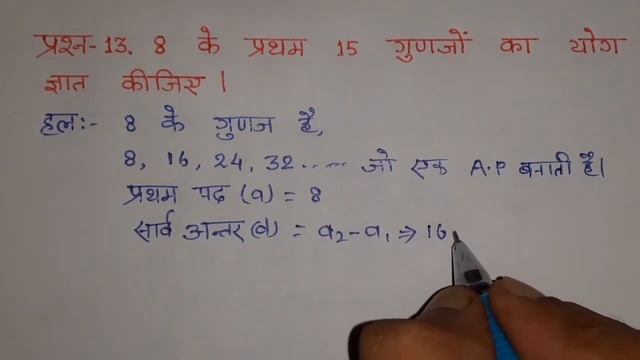 प्रश्न-13. 8 के प्रथम 15 गुणजों का योग
ज्ञात कीजिए।
हलः- 8 के गुणज है,
8, 16, 24, 32..... जो एक A.P बनाती है।
प्रथम पद (a) = 8
सार्व अन्तर (d) = a₂-a₁ ⇒ 16